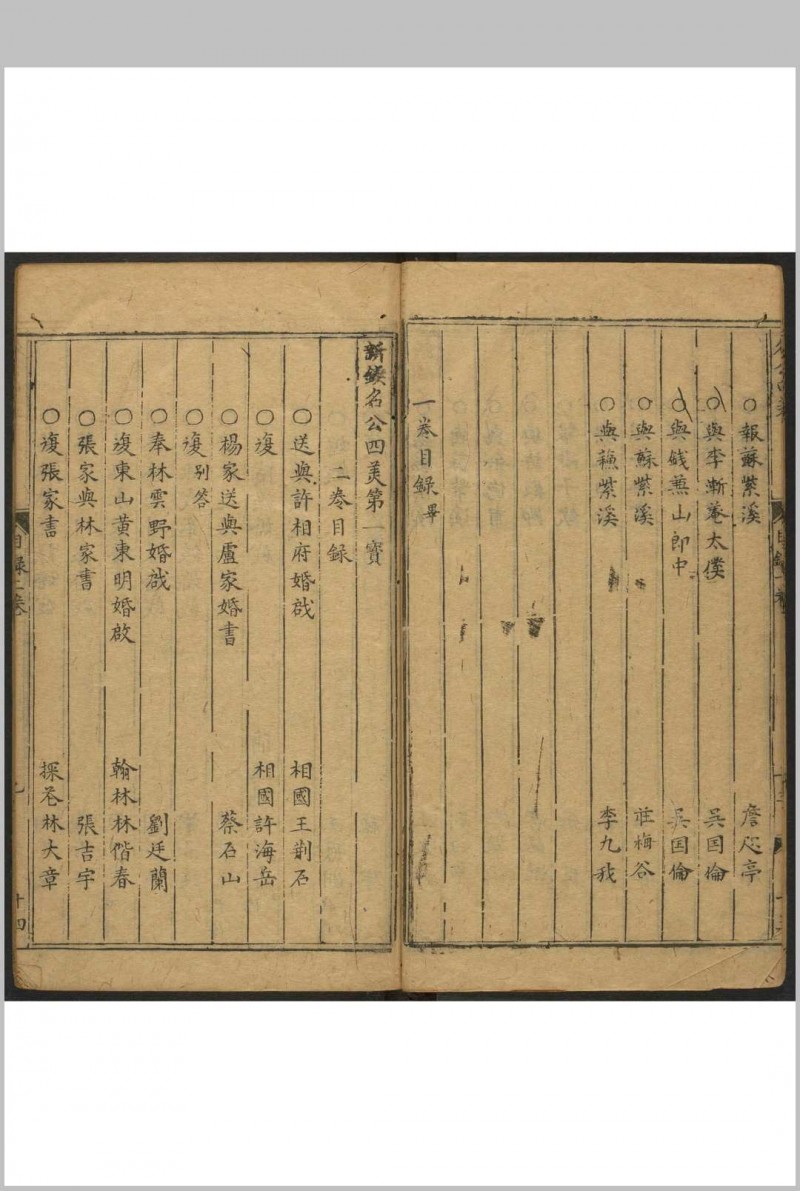 ○報蘇紫溪 詹咫亭
○與李漸菴太僕 吳囯倫
○與錢蕪山郎中 吳囯倫
○與蘇紫溪 莊梅谷
○與蘓紫溪 李九我
一卷目録畢
新鋟名公四美第一寳
二卷目録
○送與許相府婚啟 相國王荆石
○復 相國許海岳
○楊家送與盧家婚書 蔡石山
○復別答
○奉林雲野婚啟 劉廷蘭
○復東山黄東明婚啟 翰林林偕春
○張家與林家書 張吉宇
○復張家書 探花林大章
目録二卷
十四